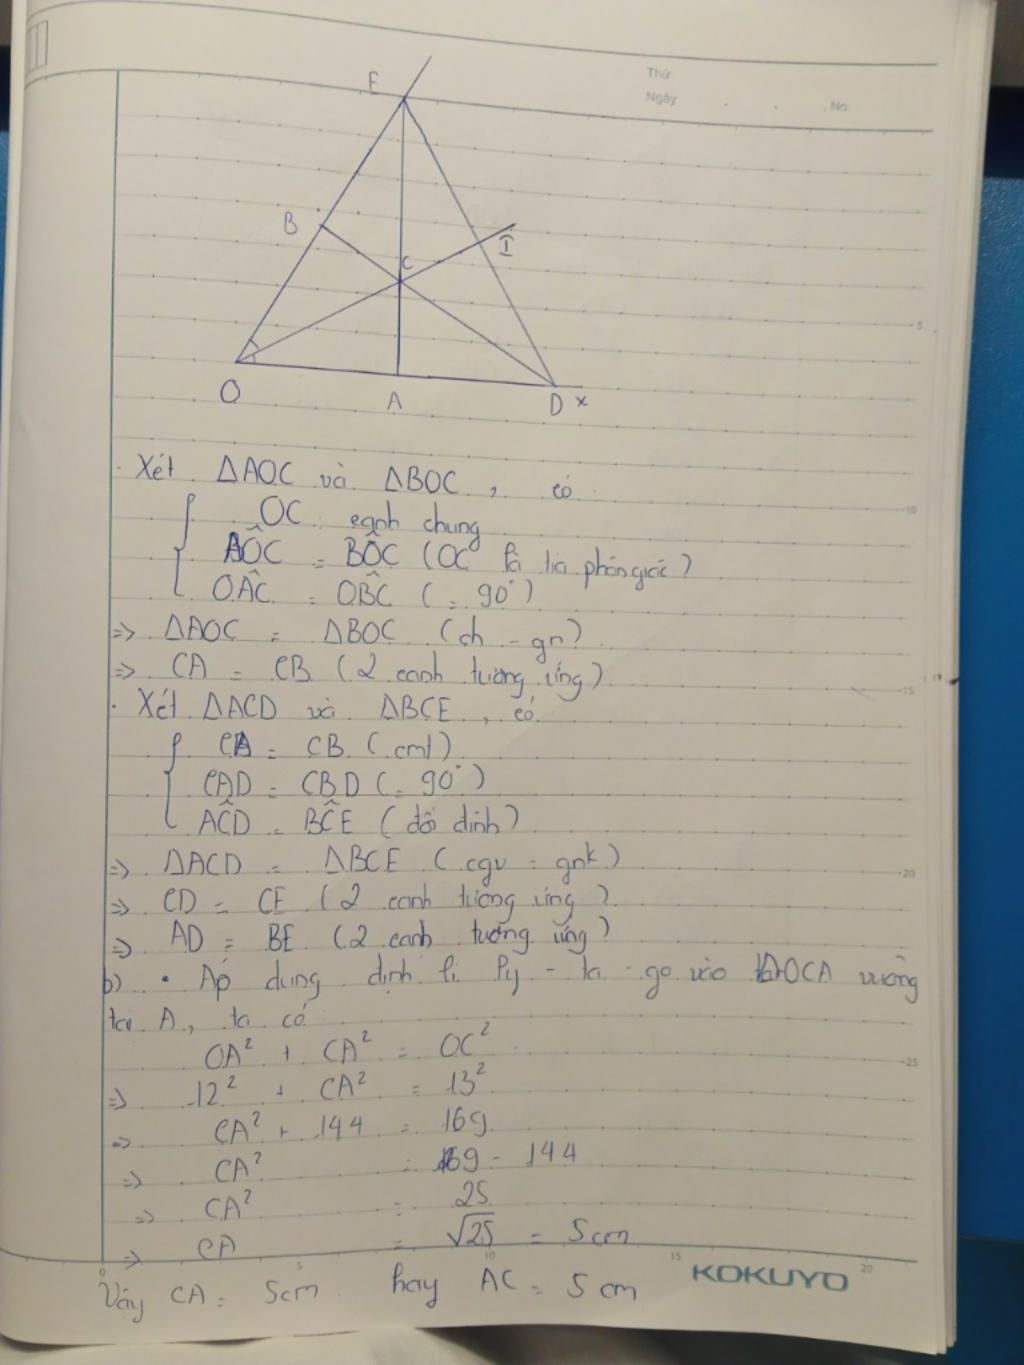 Thứ
Ngày . . . No.
E
B
I
C
O
A
D x
. Xét ΔAOC và ΔBOC, có
OC cạnh chung
AÔC = BÔC (OC là tia phân giác)
OÂC = OB̂C (= 90°)
=> ΔAOC = ΔBOC (ch - gn)
=> CA = CB (2 cạnh tương ứng)
. Xét ΔACD và ΔBCE, có
CA = CB (cmt)
CAD = CBD (= 90°)
AĈD = BĈE (đối đỉnh)
=> ΔACD = ΔBCE (cgv - gnk)
=> CD = CE (2 cạnh tương ứng)
=> AD = BE (2 cạnh tương ứng)
b) . Áp dụng định lí Py - ta - go vào ΔOCA vuông
tại A, ta có
OA² + CA² = OC²
=> 12² + CA² = 13²
=> CA² + 144 = 169
=> CA² = 169 - 144
=> CA² = 25
=> CA = √25 = 5cm
Vậy CA = 5cm hay AC = 5cm
5
10
15
20
25
0 5 10 15 20
KOKUYO